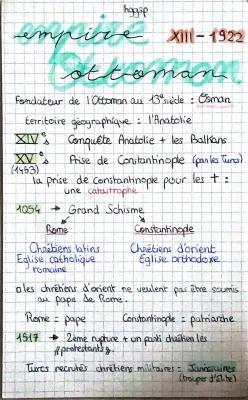 hggsp
empire ottoman
XIII - 1922
Fondateur de l'Ottoman au 13e siècle : Osman
territoire géographique : l'Anatolie
XIVe s Conquête Anatolie + les Balkans
XVe s Prise de Constantinople (par les Turcs)
(1453)
la prise de constantinople pour les + :
une catastrophe
1054 → Grand Schisme
Rome Constantinople
Chrétiens latins Chrétiens d'orient
Eglise catholique Eglise orthodoxe
romaine
les chrétiens d'orient ne veulent pas être soumis
au pape de Rome.
Rome = pape Constantinople = patriarche
1517 → 2ème rupture + un parti chrétien les
"protestants".
Turcs recrutés chrétiens militaires = Janissaires
(troupes d'élite)